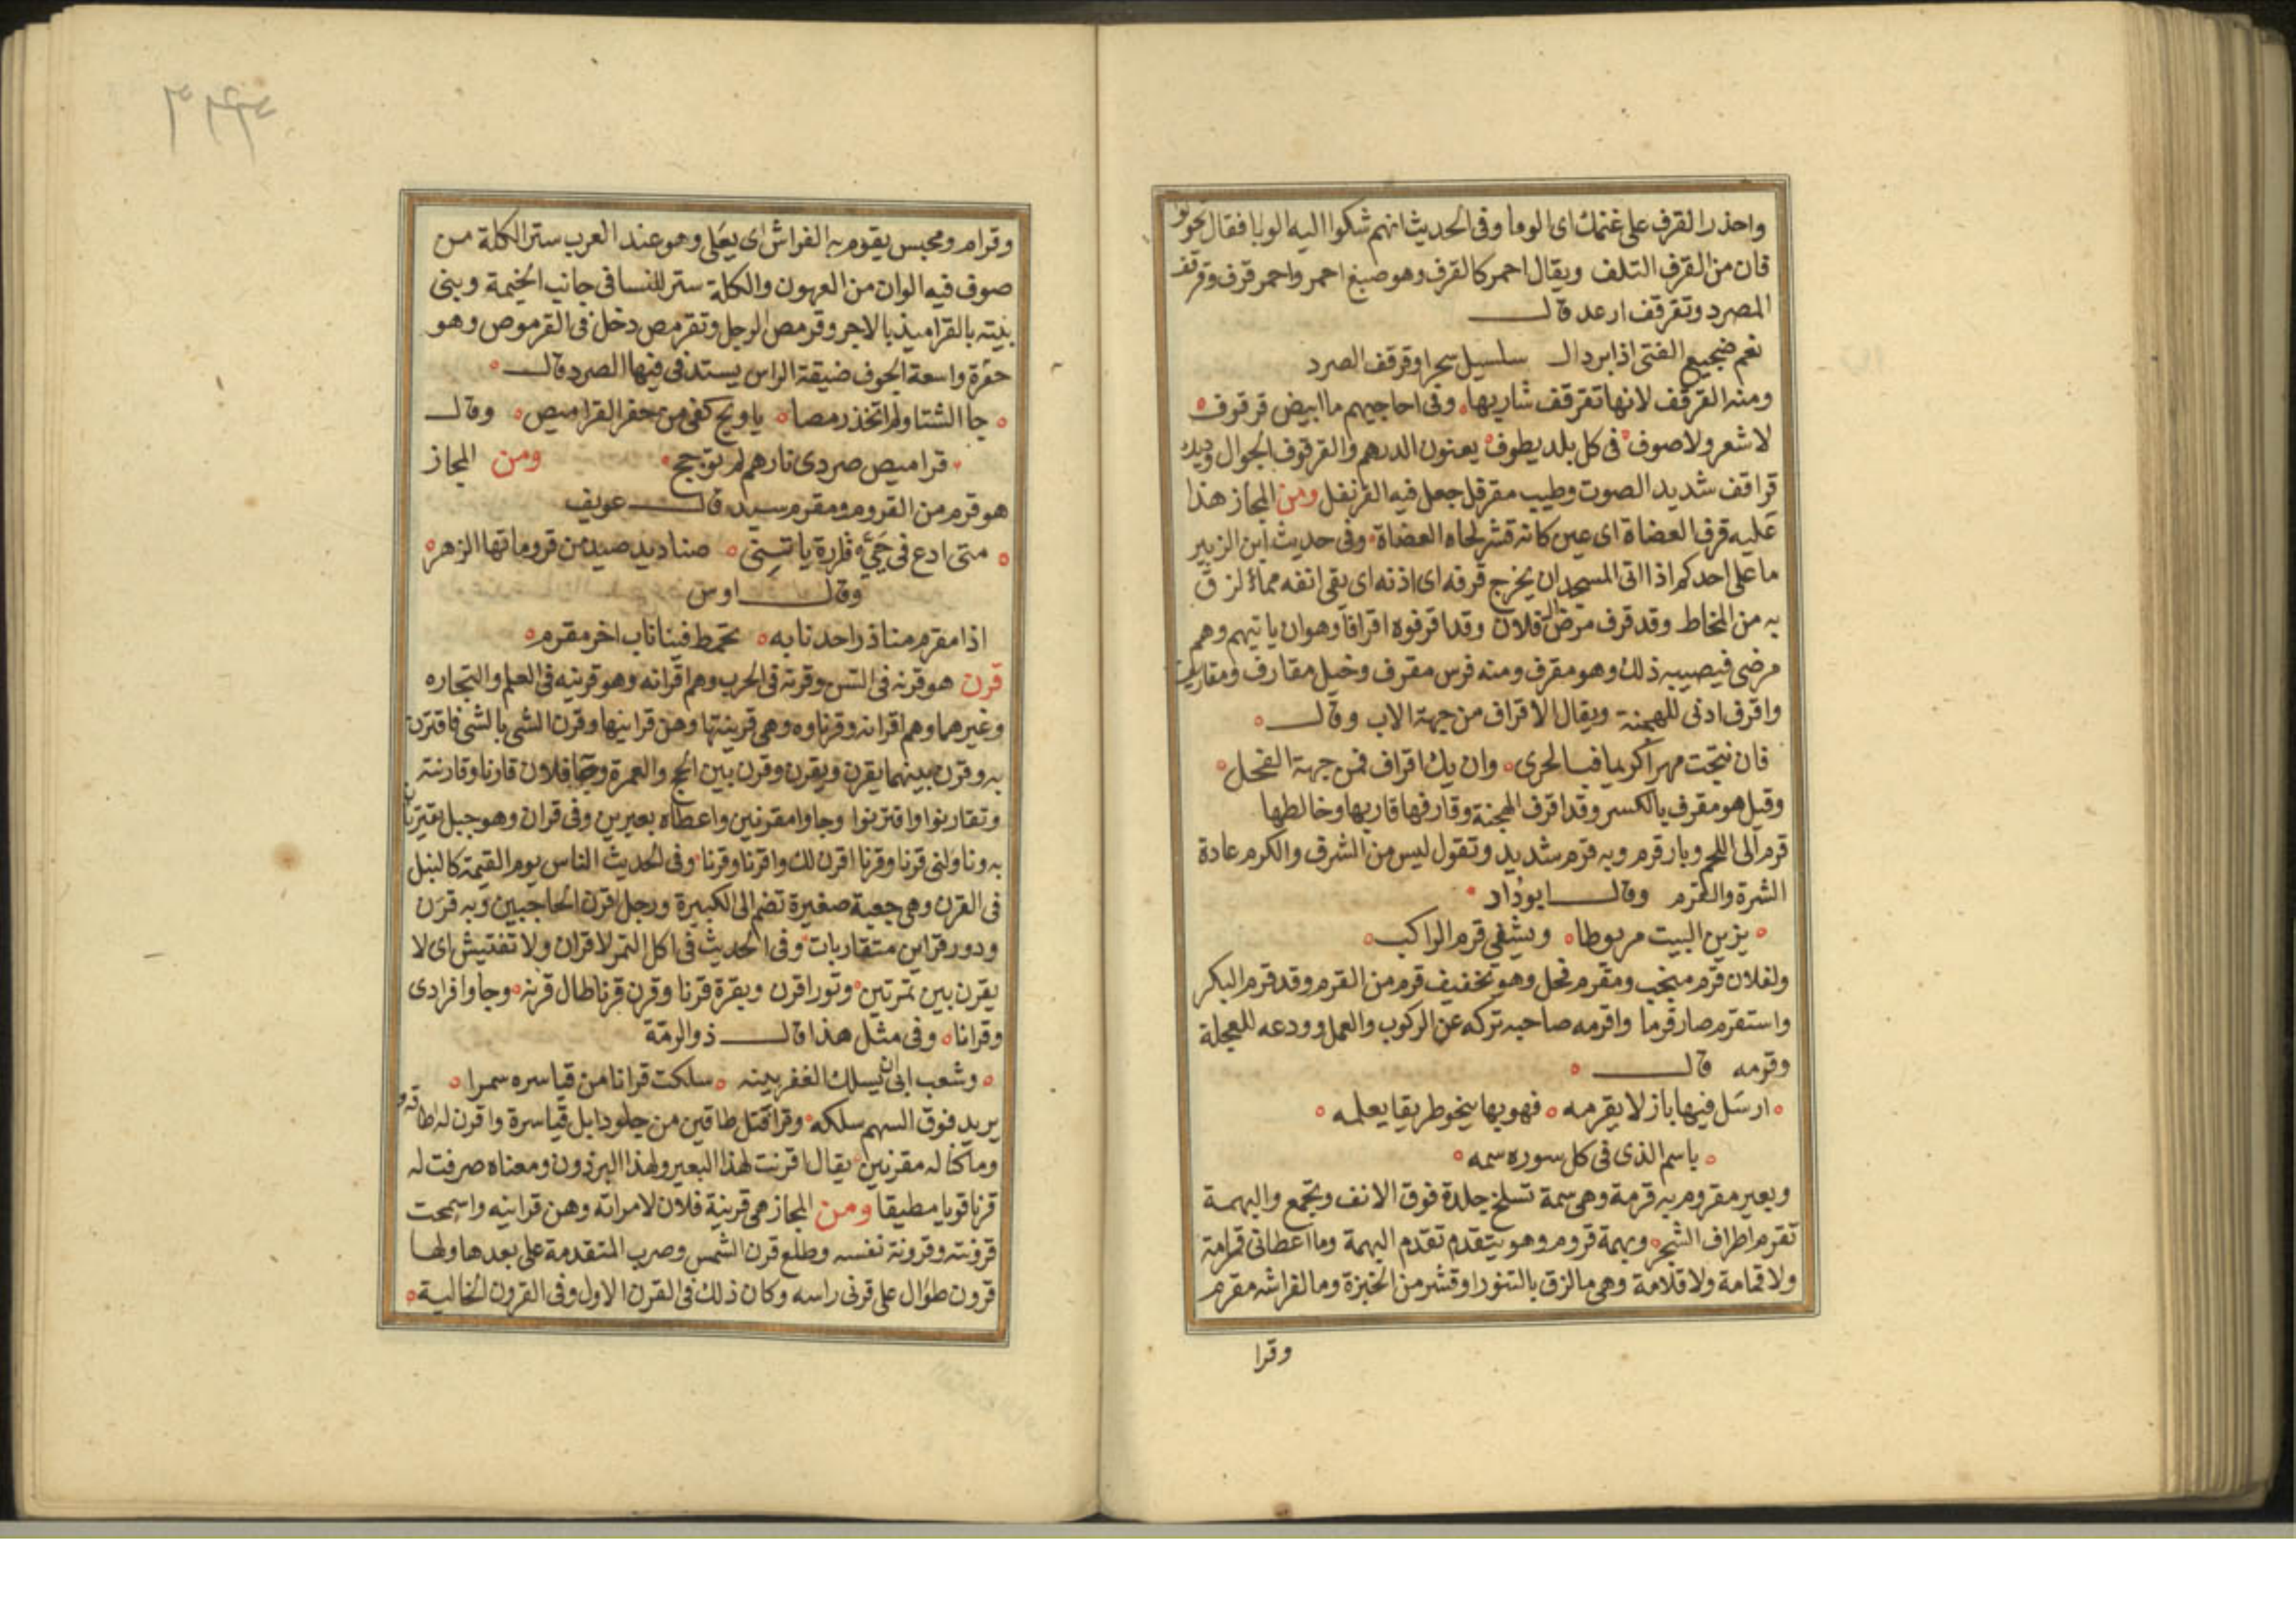 واحذر القرف على غنمك اى الوبا وفى الحديث انهم شكوا اليه الوبا فقال تحولوا
فان من القرف التلف ويقال احمر كالقرف وهو صبغ احمر واحمر قرف وقرقف
المصرد وتقرقف ارعد قال
نعم ضجيع الفتى اذا برد الـ سلسيل سحرا وقرقف الصرد
ومنه القرقف لانها تقرقف شاربها وفى احاجيهم ما ابيض قرقوف
لا شعر ولا صوف فى كل بلد يطوف يعنون الدرهم والقرقوف الجوال وديك
قراقف شديد الصوت وطيب مقرفل جعل فيه القرنفل ومن المجاز هذا
عليه قرف العضاة اى عين كانه قشر لحاه العضاة وفى حديث ابن الزبير
ما على احدكم اذا اتى المسجد ان يخرج قرفه اى اذنه اى يقى انفه مماء لزق
به من المخاط وقد قرف مرض ال فلان وقد اقرفوه اقرافا وهو ان ياتيهم وهم
مرضى فيصيبه ذلك وهو مقرف ومنه فرس مقرف وخيل مقارف ومقاريف
واقرف ادنى للهجنة ويقال الاقراف من جهة الاب وقال
فان نتجت مهرا كريما فبالحرى وان يك اقراف فمن جهة الفحل
وقيل هو مقرف بالكسر وقد اقرف الهجنة وقارفها قاربها وخالطها
قرم الى اللحم وبار قرم وبه قرم شديد وتقول ليس من الشرف والكرم عادة
الشرة والقرم وقال ابو دُاد
يزين البيت مربوطا ويشفى قرم الراكب
ولفلان قرم منجب ومقرم فحل وهو تخفيف قرم من القرم وقد قرم البكر
واستقرم صار قرما واقرمه صاحبه تركه عن الركوب والعمل وودعه للعجلة
وقرمه قال
ارسل فيها باز لا يقرمه فهو بها ينحو طريقا يعلمه
باسم الذى فى كل سوره سمه
وبعير مقروم به قرمة وهى سمة تسلخ جلدة فوق الانف وتجمع والبهمة
تقرم اطراف الشجر وبهمة قروم وهو يتقدم تقدم البهمة وما اعطانى قرامة
ولا قمامة ولا قلامة وهى ما لزق بالتنور او قشر من الخبزة وما لفراشه مقرم
وقرا
٣٩٣
وقرام ومحبس يقوم به الفراش اى يعلى وهو عند العرب ستر الكلة من
صوف فيه الوان من العهون والكلة ستر للنسا فى جانب الخيمة وبنى
بنيته بالقراميذ بالاجر وقرمص الرجل وتقرمص دخل فى القرموص وهو
حفرة واسعة الجوف ضيقة الراس يستدفى فيها الصرد قال
جا الشتا ولم اتخذ ربصا يا ويح كفى من حفر القراميص وقال
قراميص صردى نارهم لم توجج ومن المجاز
هو قرم من القروم ومقرم سيد قال عويف
متى ادع فى حى فزارة ياتنى صناديد صيد من قروماتها الزهر
وقال اوس
اذا مقرم منا ذرا حد نابه تخمط فينا ناب اخر مقرم
قرن هو قرنه فى السن وقرنه فى الحرب وهم اقرانه وهو قرينه فى العلم والتجاره
وغيرهما وهم اقرانه وقرناوه وهى قرينتها وهن قراينها وقرن الشى بالشى فاقترن
به وقرن بينهما يقرن ويقرن وقرن بين الحج والعمرة وجا فلان قارنا وقارنته
وتقارنوا واقترنوا وجاوا مقرنين واعطاه بعيرين وفى قران وهو حبل يقترنان
به وناولنى قرنا وقرنا اقرن لك واقرنا وقرنا وفى الحديث الناس يوم القيمة كالنبل
فى القرن وهى جعبة صغيرة تضم الى الكبيرة ورجل اقرن الحاجبين وبه قرن
ودور قراين متقاربات وفى الحديث فى اكل التمر لا قران ولا تفتيش اى لا
يقرن بين تمرتين وثور اقرن وبقرة قرنا وقرن قرنا طال قرنه وجاوا فرادى
وقرانا وفى مثل هذا قال ذو الرمة
وشعب ابى ان يسلك الغفر بينه سلكت قرانا من قياسره سمرا
يريد فوق السهم سلكه وقرا قتل طاقين من جلود ابل قياسرة واقرن له اطاقه
وما كنا له مقرنين يقال اقرنت لهذا البعير ولهذا البرذون ومعناه صرفت له
قرنا قويا مطيقا ومن المجاز هى قرينة فلان لامراته وهن قراينه واسمحت
قرونته وقرونة نفسه وطلع قرن الشمس وضرب المتقدمة على بعدها ولها
قرون طوال على قرنى راسه وكان ذلك فى القرن الاول وفى القرون الخالية